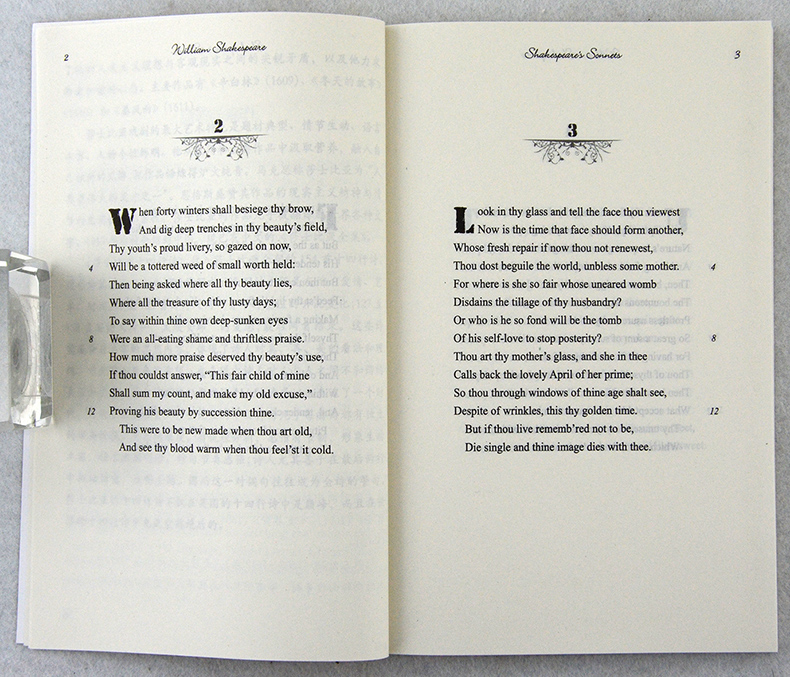 2
William Shakespeare
2
When forty winters shall besiege thy brow,
And dig deep trenches in thy beauty's field,
Thy youth's proud livery, so gazed on now,
4 Will be a tottered weed of small worth held:
Then being asked where all thy beauty lies,
Where all the treasure of thy lusty days;
To say within thine own deep-sunken eyes
8 Were an all-eating shame and thriftless praise.
How much more praise deserved thy beauty's use,
If thou couldst answer, “This fair child of mine
Shall sum my count, and make my old excuse,”
12 Proving his beauty by succession thine.
This were to be new made when thou art old,
And see thy blood warm when thou feel'st it cold.
Shakespeare's Sonnets
3
3
Look in thy glass and tell the face thou viewest
Now is the time that face should form another,
Whose fresh repair if now thou not renewest,
Thou dost beguile the world, unbless some mother. 4
For where is she so fair whose uneared womb
Disdains the tillage of thy husbandry?
Or who is he so fond will be the tomb
Of his self-love to stop posterity? 8
Thou art thy mother's glass, and she in thee
Calls back the lovely April of her prime;
So thou through windows of thine age shalt see,
Despite of wrinkles, this thy golden time. 12
But if thou live rememb'red not to be,
Die single and thine image dies with thee.